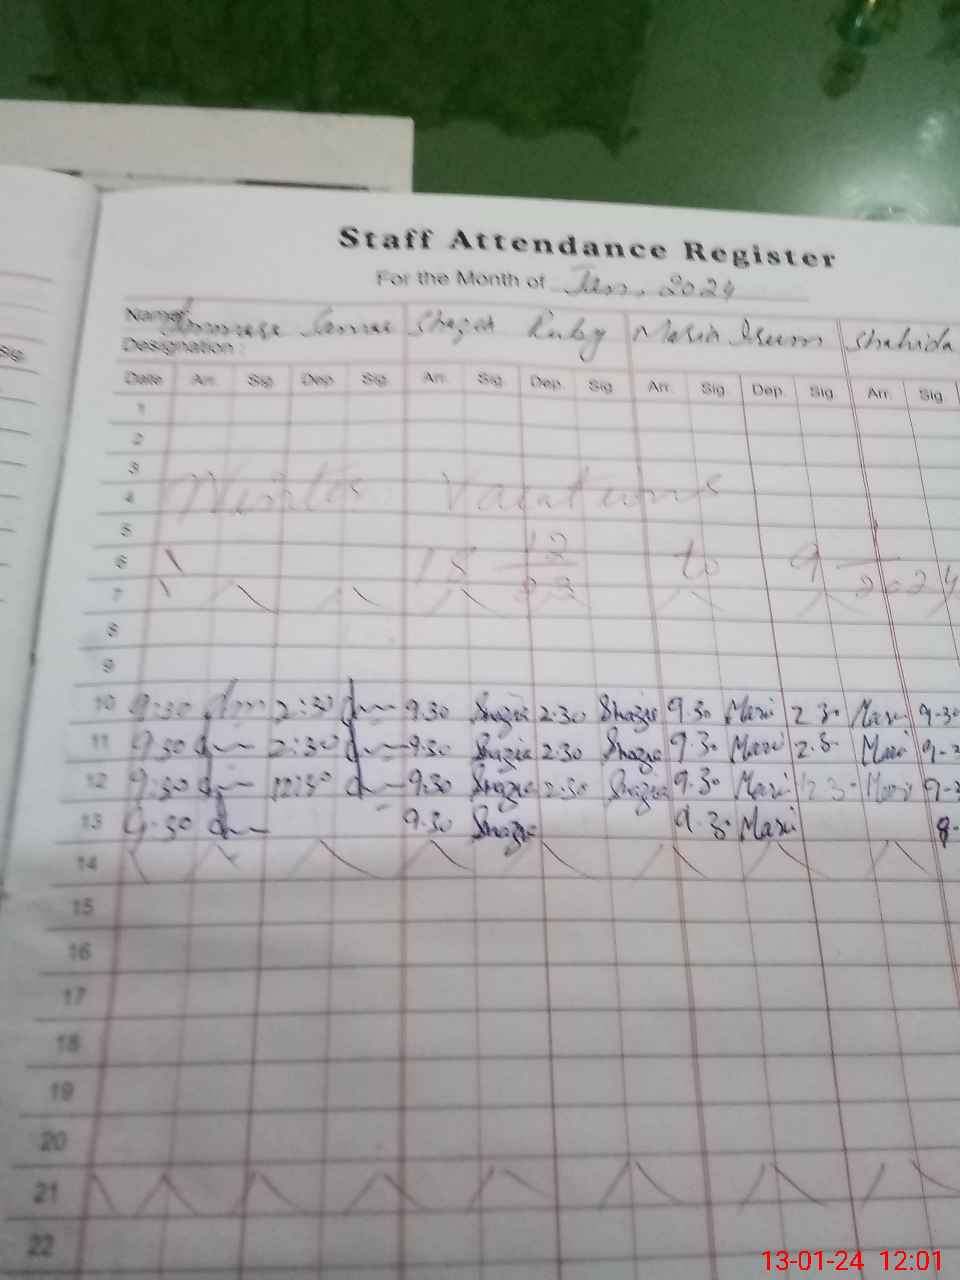 Sig.
Staff Attendance Register
For the Month of Jan. 2024
Name: Shazia Ruby Maria Shahida
Designation :
Date Arr. Sig. Dep. Sig. Arr. Sig. Dep. Sig. Arr. Sig. Dep. Sig. Arr. Sig.
1
2
3
4 Winter Vacations
5
6 18 12 23 to 9 1 2024
7
8
9
10 9:30 2:30 9.30 Shazia 2:30 Shazia 9.30 Mari 2.30 Mari 9-30
11 9:30 2:30 9:30 Shazia 2:30 Shazia 9.30 Mari 2.3- Mari 9-3
12 9:30 12:30 9:30 Shazia 2:30 Shazia 9.30 Mari 12 3- Mari 9-3
13 9-30 9.30 Shazia 9.30 Mari 9-
14
15
16
17
18
19
20
21
22
13-01-24 12:01